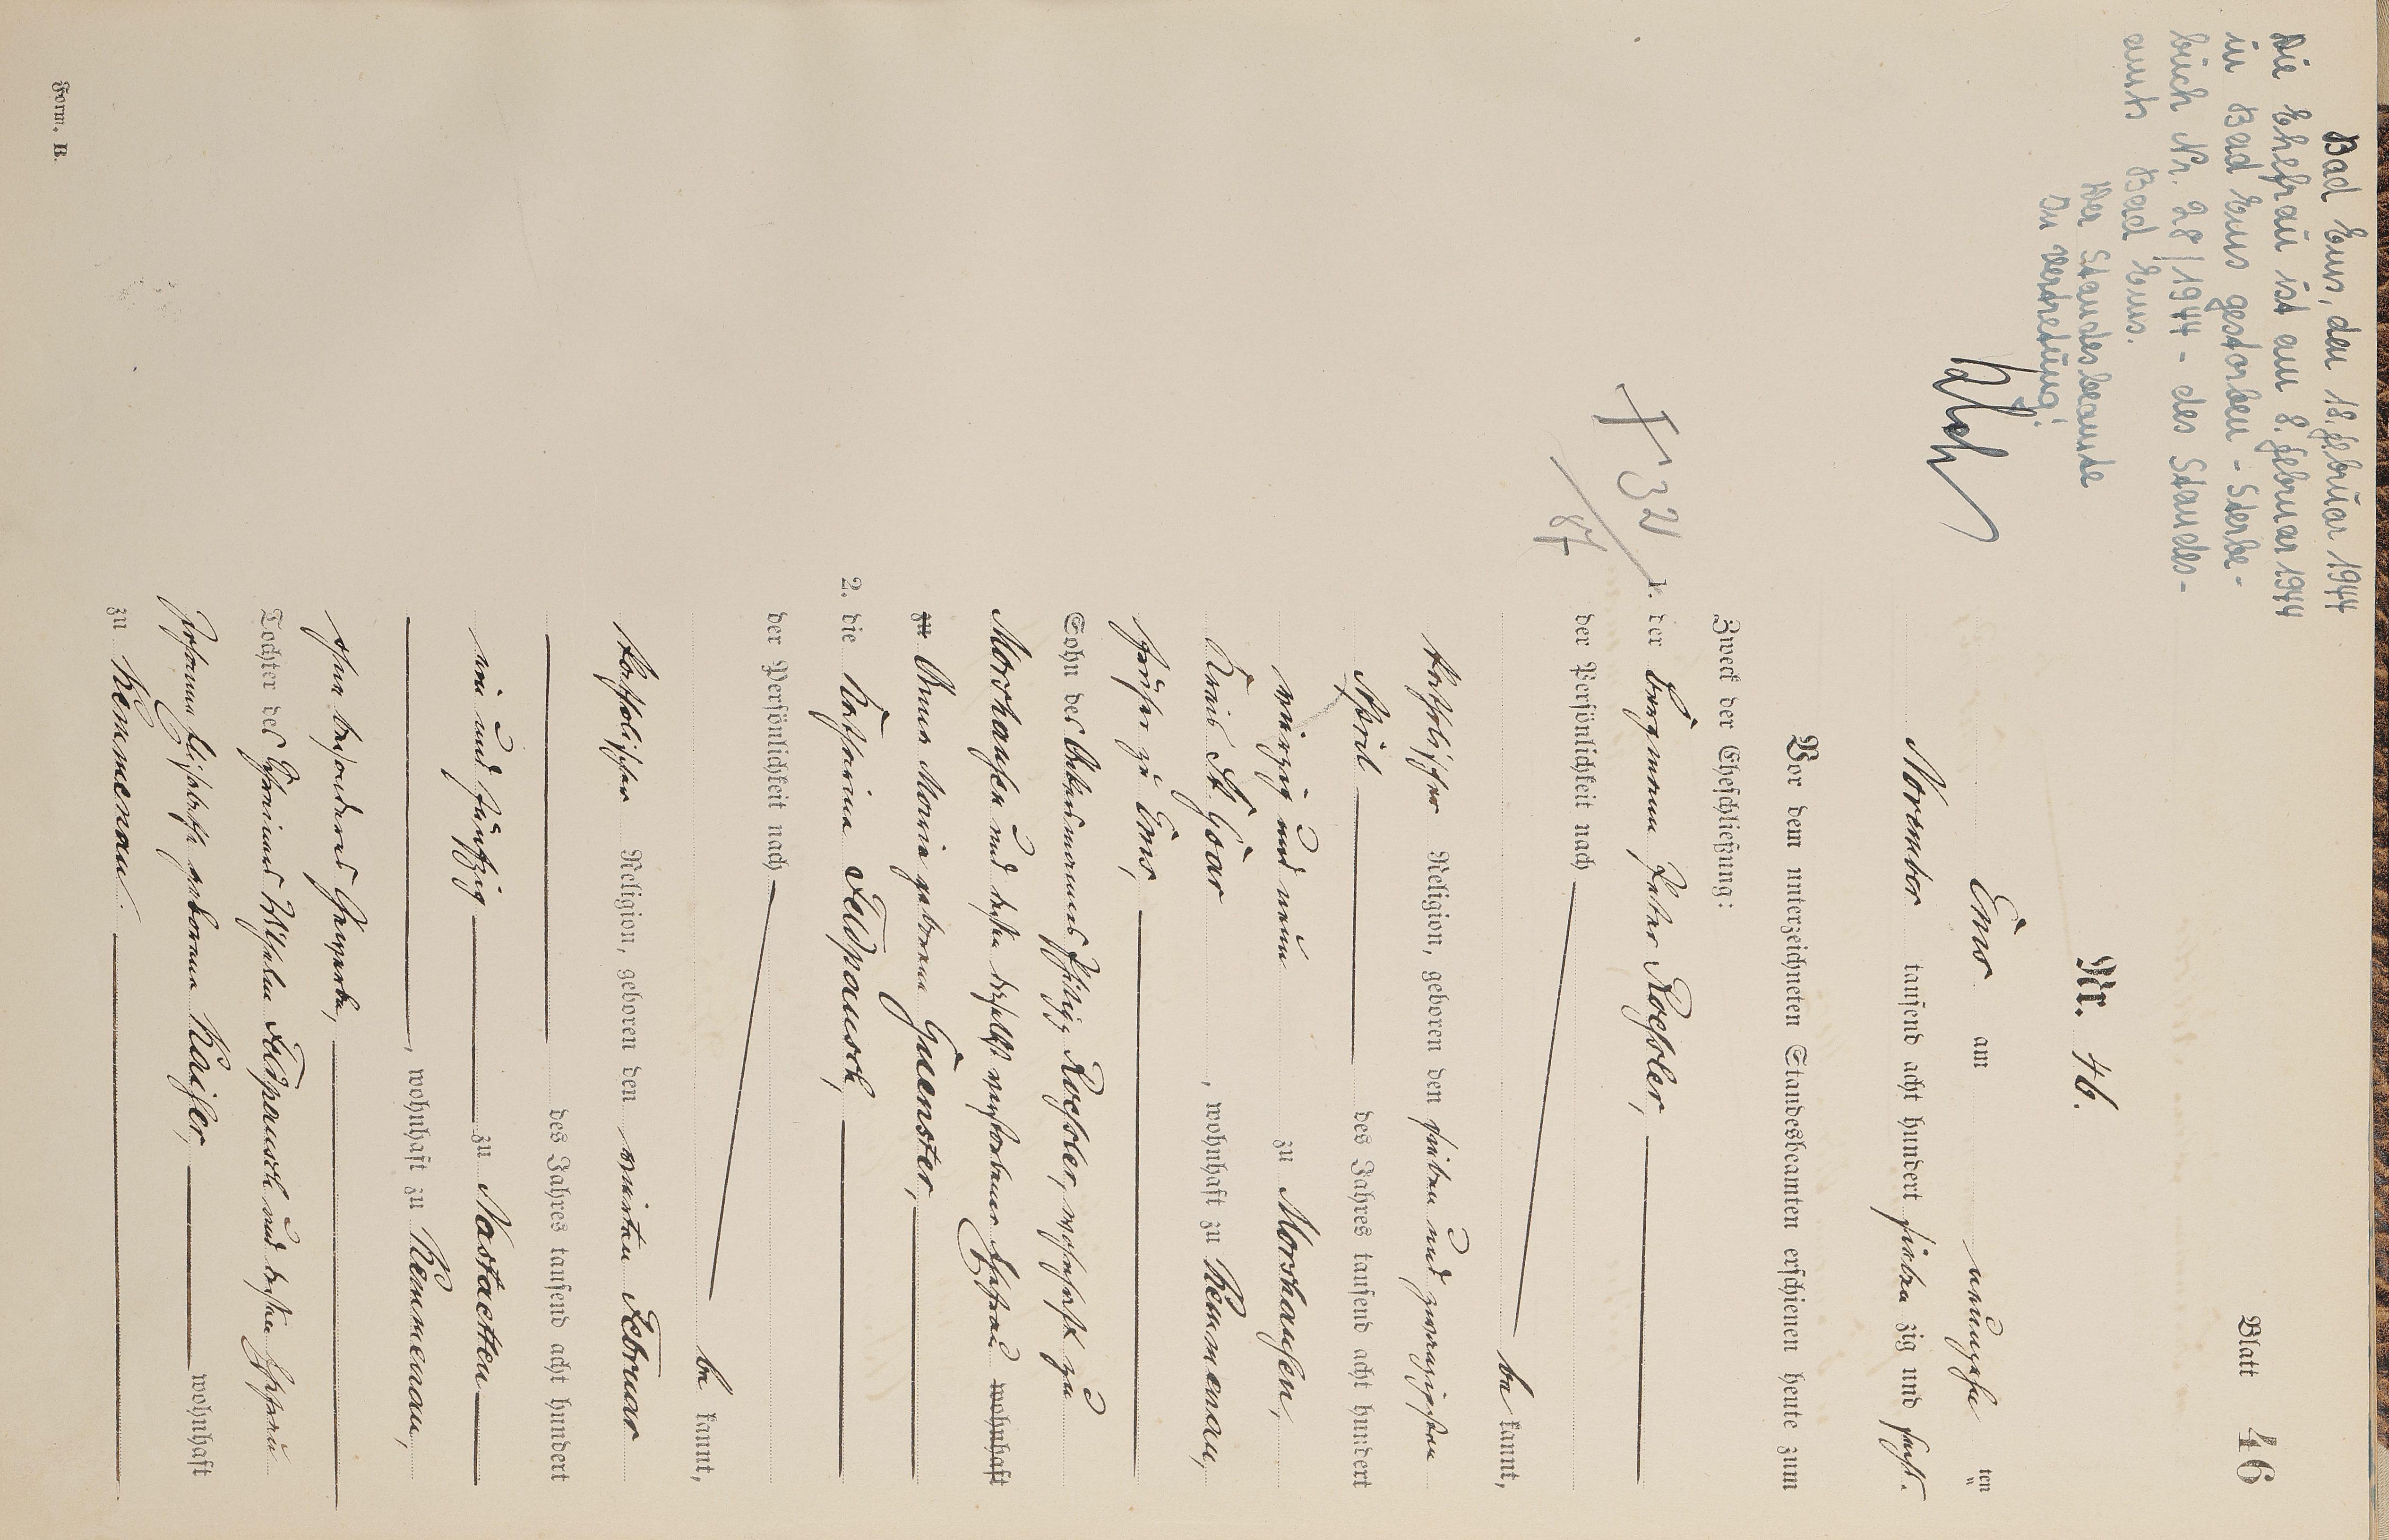 Blatt 46
Nr. 46.
Ems am neunzehn ten
November tausend acht hundert sieben zig und sechs.
Vor dem unterzeichneten Standesbeamten erschienen heute zum
Zweck der Eheschließung:
1. der Bergmann Peter Roeßler,
der Persönlichkeit nach
be kannt,
katholischer Religion, geboren den sieben und zwanzigsten
April des Jahres tausend acht hundert
vierzig und neun zu Morshausen,
Kreis St. Goar, wohnhaft zu Kemmenau,
früher zu Ems,
Sohn des Ackersmannes Philipp Roeßler, wohnhaft zu
Morshausen und dessen daselbst verstorbener Ehefrau wohnhaft
zu Anna Maria geborenen Guenster,
2. die Katharina Feldpausch,
der Persönlichkeit nach
be kannt,
katholischer Religion, geboren den vierten Februar
des Jahres tausend acht hundert
ein und fünfzig zu Nastaetten
, wohnhaft zu Kemmenau,
ohne besonderes Gewerbe,
Tochter des Wilhelm Feldpausch und dessen Ehefrau
Johanna Elisabethe geborenen Kaiser, wohnhaft
zu Kemmenau.
Bad Ems, den 18. Februar 1944
Die Ehefrau ist am 8. Februar 1944
in Bad Ems gestorben - Sterbe-
buch Nr. 28/1944 - des Standes-
amts Bad Ems.
Der Standesbeamte
In Vertretung:
+ 32/87
Form. B.